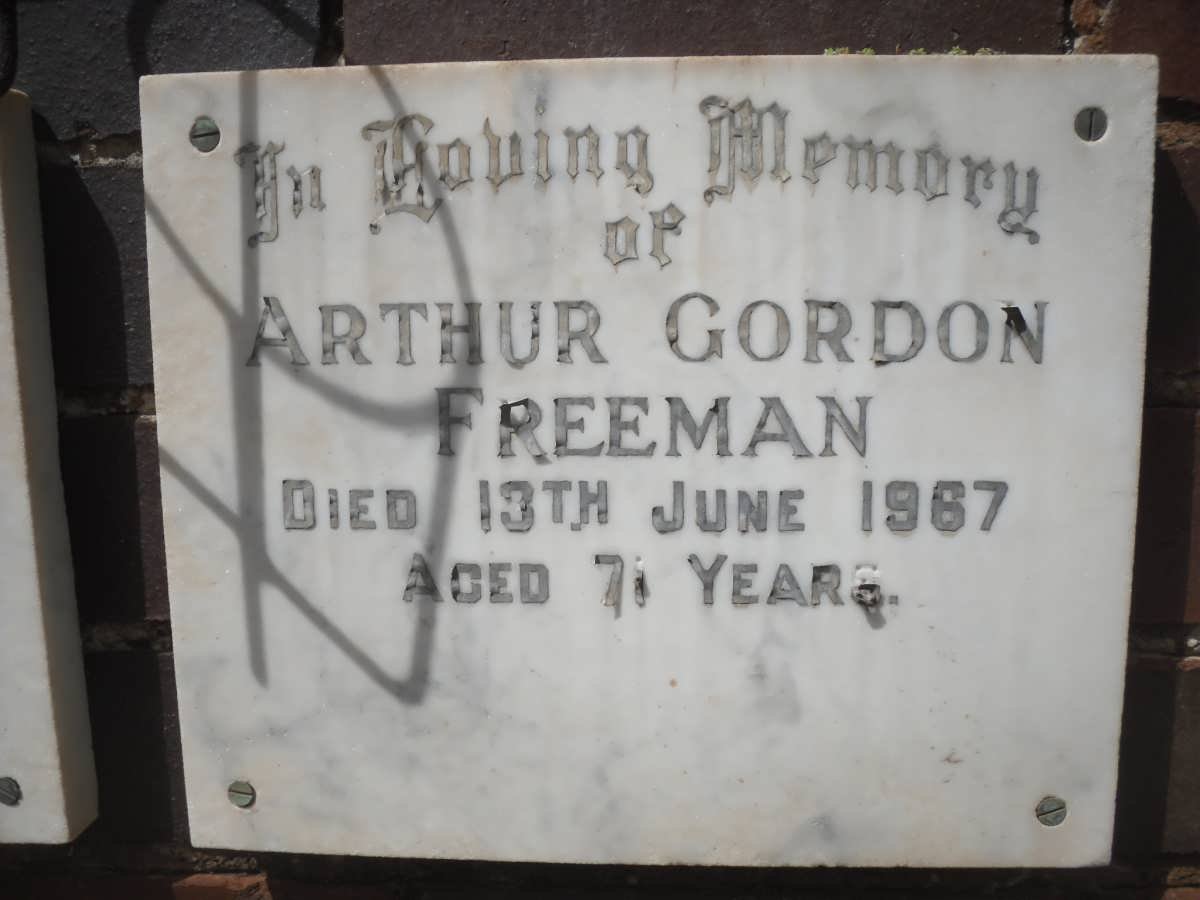 In Loving Memory
of
ARTHUR GORDON
FREEMAN
DIED 13TH JUNE 1967
AGED 71 YEARS.